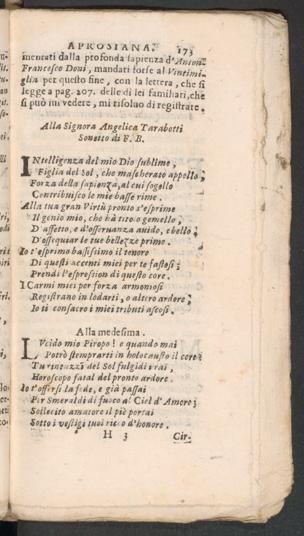 APROSIANA. 173
mentati dalla profonda sapienza d'Anton.
Francesco Doni, mandati forse al Vintimi-
glia per questo fine, con la lettera, che si
legge a pag. 207. delle di lei familiari, che
si può iui vedere, mi risoluo di registrare.
Alla Signora Angelica Tarabotti
Sonetto di F. B.
INtelligenza del mio Dio sublime,
Figlia del Sol, che mascherato appollo,
Forza della sapienza, al cui sogello
Contribuisco le mie basse rime.
Alla tua gran Virtù pronto t'esprime
Il genio mio, che hà teco gemello,
D'affetto, e d'osseruanza auido, ebello,
D'ossequiar le tue bellezze prime.
Io t'esprimo bassissimo il tenore
Di questi accenti miei per te fastosi;
Prendi l'espression di questo core.
I Carmi miei per forza armoniosi
Registrano in lodarti, o altero ardore;
Io ti consacro i miei tributi ascosi.
Alla medesima.
LVcido mio Piropo! e quando mai
Potrò stemprarti in holocausto il core?
del Sol fulgidi rai,
Horoscopo fatal del pronto ardore.
Io t'offersi la fede, e già passai
Per Smeraldi di fuoco al Ciel d'Amore;
Sollecito amatore il piè portai
Sotto i vestigi tuoi ricco d'honore.
H 3 Cir-